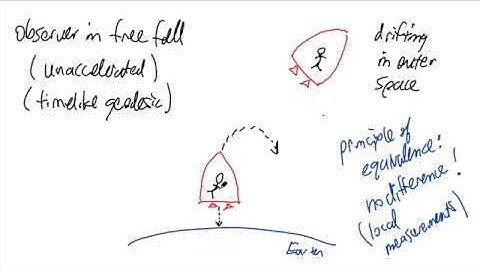 observer in free fall
(unaccelerated)
(timelike geodesic)
drifting
in outer
space
principle of
equivalence:
no difference!
(local
measurements)
Earth